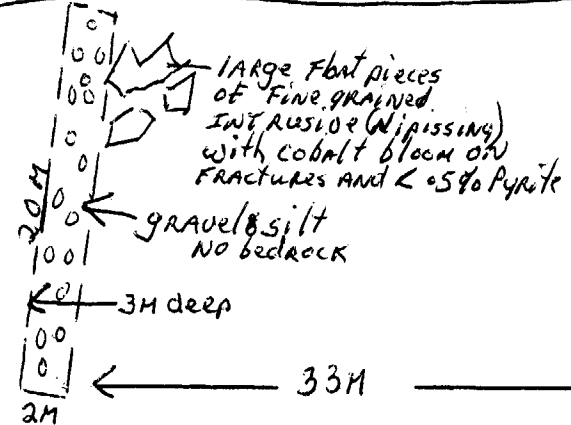 LARge Float pieces
of Fine grained
INTRUSIVE (Nipissing)
with cobalt bloom ON
FRACTURES AND < .5% Pyrite
20M
gRAVel & silt
NO bedrock
3M deep
33M
2M